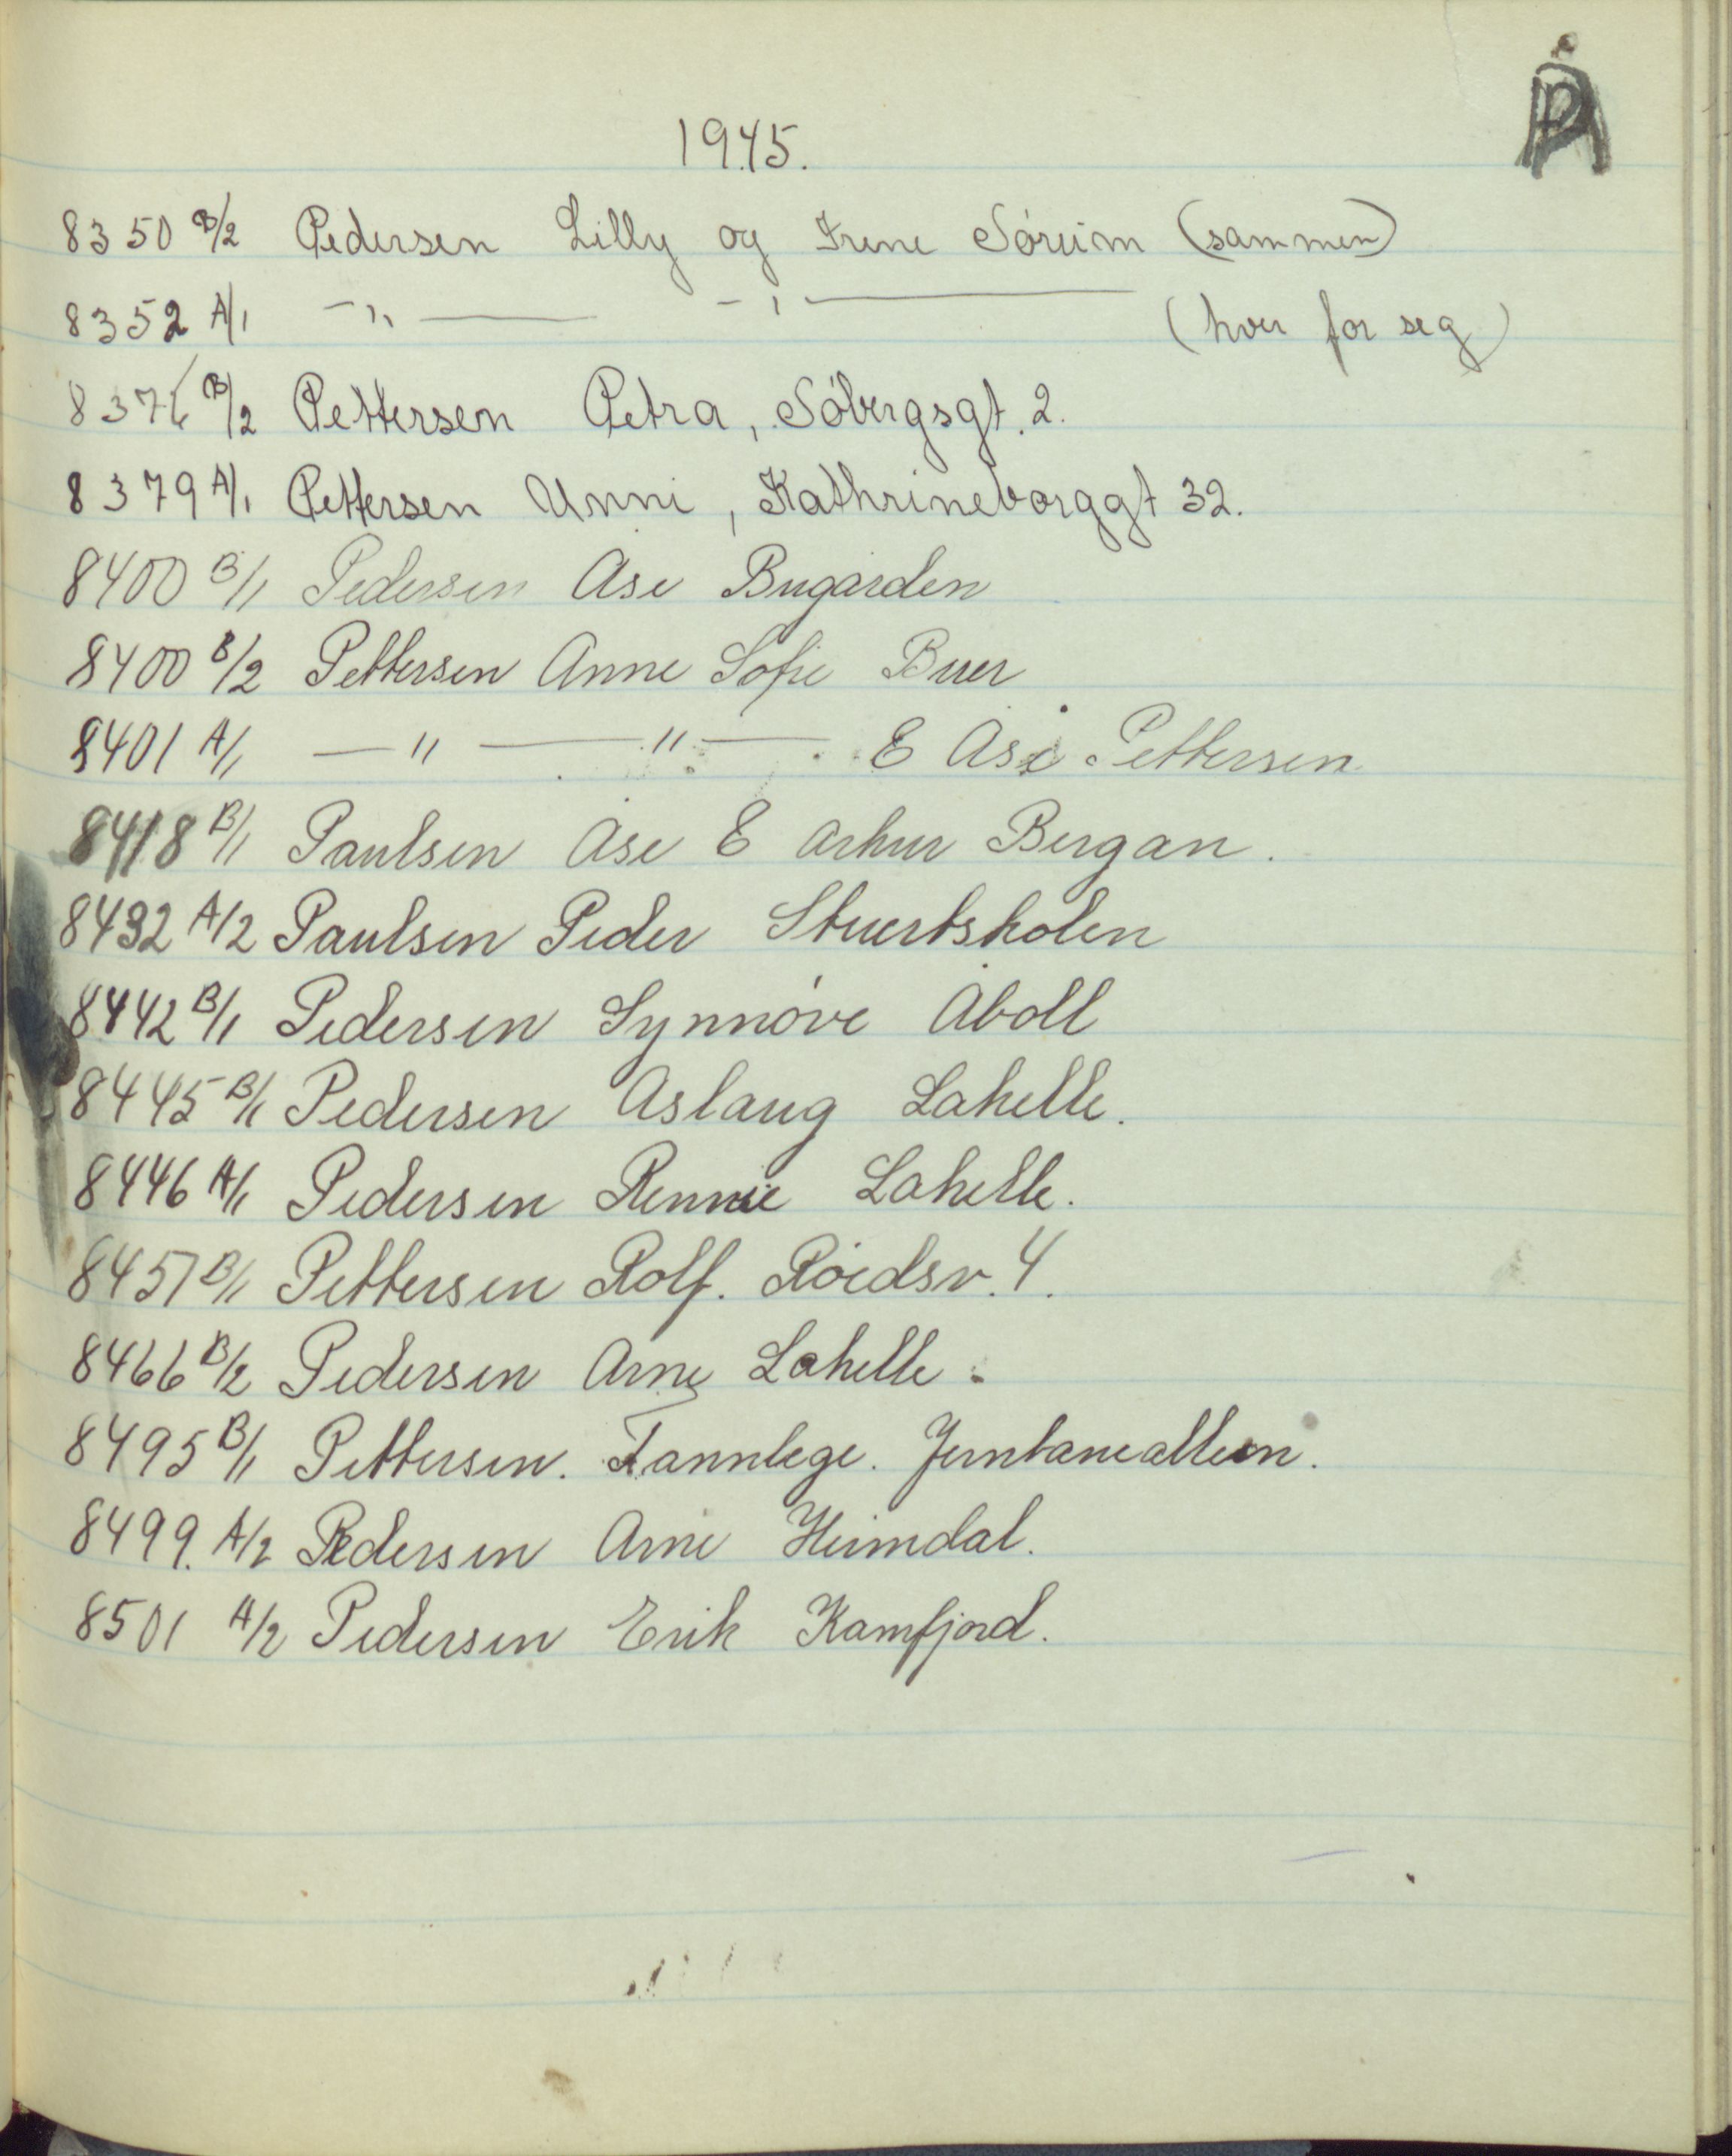 P
1945.
8350 B/2 Pedersen Lilly og Irene Sórum (sammen)
8352 A/1 —"— —"— (hver for seg)
8376 B/2 Pettersen Petra, Sóbergsgt. 2.
8379 A/1 Pettersen Unni, Kathrineborggt 32.
8400 B/1 Pedersen Åse Bugården
8400 B/2 Pettersen Anne Sofie Buer
8401 A/1 —"— —"— & Åse Pettersen
8418 B/1 Paulsen Åse & Arhur Bergan.
8432 A/2 Paulsen Peder Stuertskolen
8442 B/1 Pedersen Synnóve Åboll
8445 B/1 Pedersen Aslaug Lahelle.
8446 A/1 Pedersen Rennie Lahelle.
8457 B/1 Pettersen Rolf. Róidsv. 4.
8466 B/2 Pedersen Arne Lahelle.
8495 B/1 Pettersen. Tannlege. Jernbanealleen.
8499. A/2 Pedersen Arne Heimdal.
8501 A/2 Pedersen Erik Kamfjord.